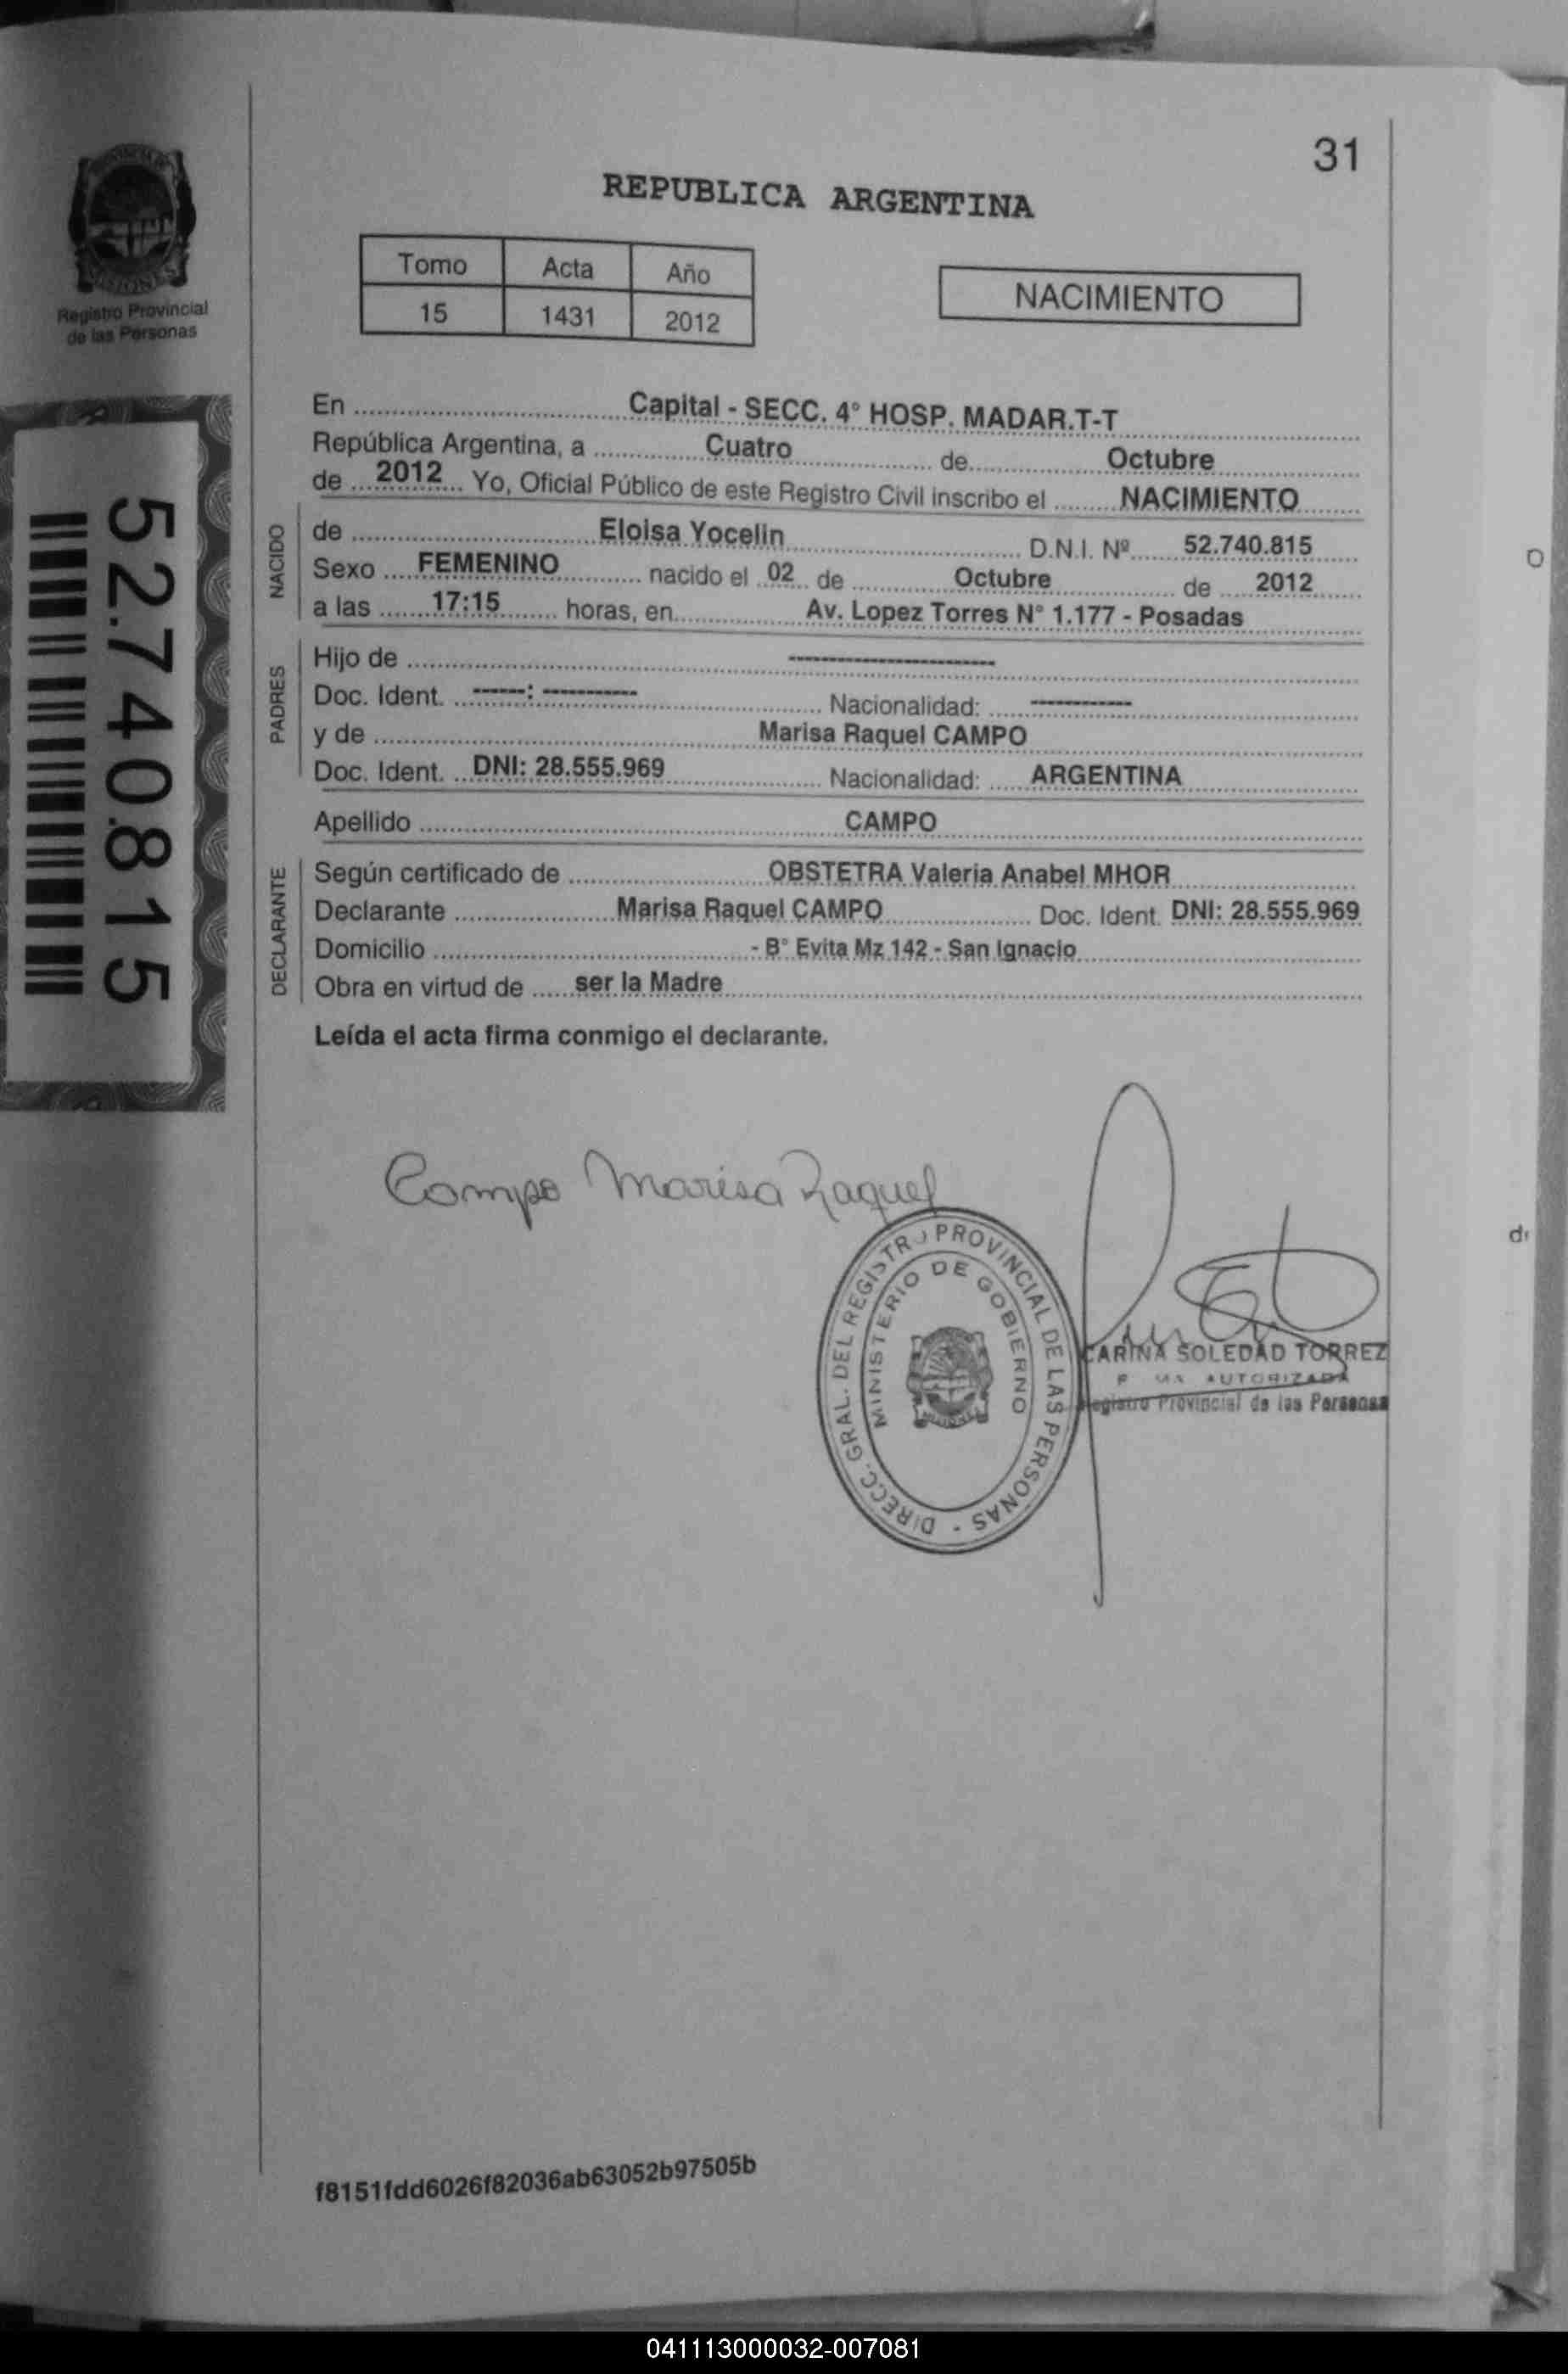 31
REPUBLICA ARGENTINA
Registro Provincial
de las Personas
Tomo Acta Año
15 1431 2012
NACIMIENTO
52.740.815
En Capital - SECC. 4° HOSP. MADAR.T-T
República Argentina, a Cuatro de Octubre
de 2012 Yo, Oficial Público de este Registro Civil inscribo el NACIMIENTO
NACIDO
de Eloisa Yocelin D.N.I. Nº 52.740.815
Sexo FEMENINO nacido el 02 de Octubre de 2012
a las 17:15 horas, en Av. Lopez Torres N° 1.177 - Posadas
PADRES
Hijo de ----------------------
Doc. Ident. ------: ---------- Nacionalidad: -----------
y de Marisa Raquel CAMPO
Doc. Ident. DNI: 28.555.969 Nacionalidad: ARGENTINA
Apellido CAMPO
DECLARANTE
Según certificado de OBSTETRA Valeria Anabel MHOR
Declarante Marisa Raquel CAMPO Doc. Ident. DNI: 28.555.969
Domicilio - B° Evita Mz 142 - San Ignacio
Obra en virtud de ser la Madre
Leída el acta firma conmigo el declarante.
Campo Marisa Raquel
DIRECC. GRAL. DEL REGISTRO PROVINCIAL DE LAS PERSONAS -
MINISTERIO DE GOBIERNO
CARINA SOLEDAD TORREZ
AUTORIZADA
Registro Provincial de las Personas
f8151fdd6026f82036ab63052b97505b
041113000032-007081